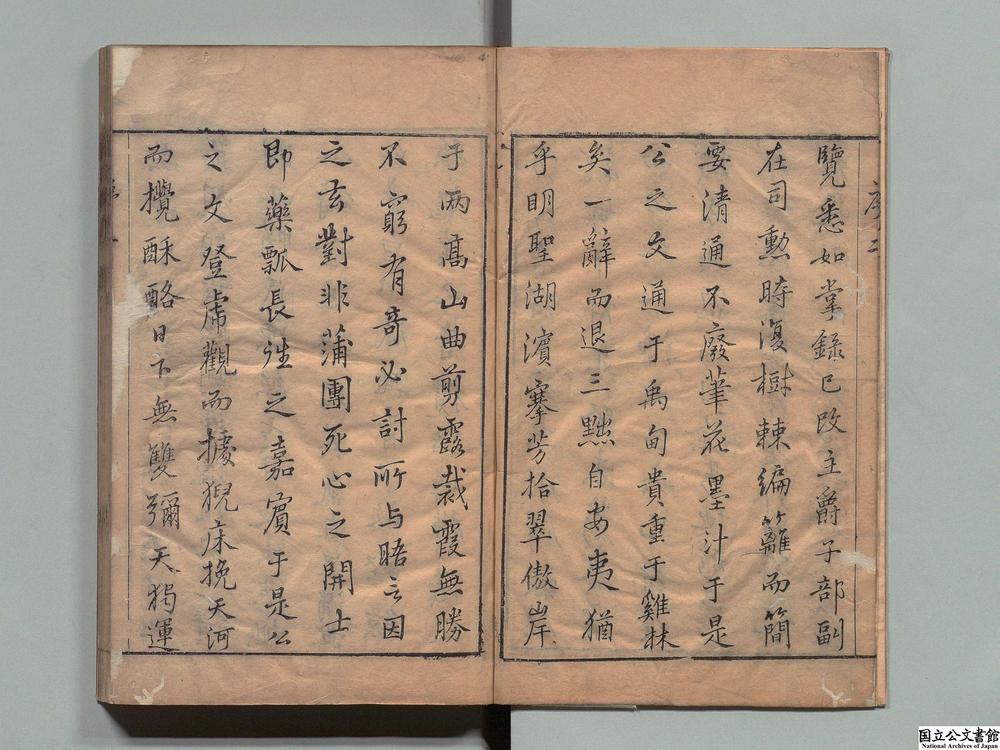 序二
覽悉如掌錄已改主爵子部副
在司勳時復樹棘編籬而簡
要清通不廢筆花墨汁于是
公之文通于禹甸貴重于雞林
矣一辭而退三黜自安夷猶
乎明聖湖濱搴芳拾翠傲岸
于两高山曲剪露裁霞無勝
不窮有奇必討所与晤言因
之玄對非蒲團死心之開士
即藥瓢長往之嘉賓于是公
之文登虎觀而據猊床挽天河
而攪酥酪日下無雙彌天獨運
国立公文書館
National Archives of Japan